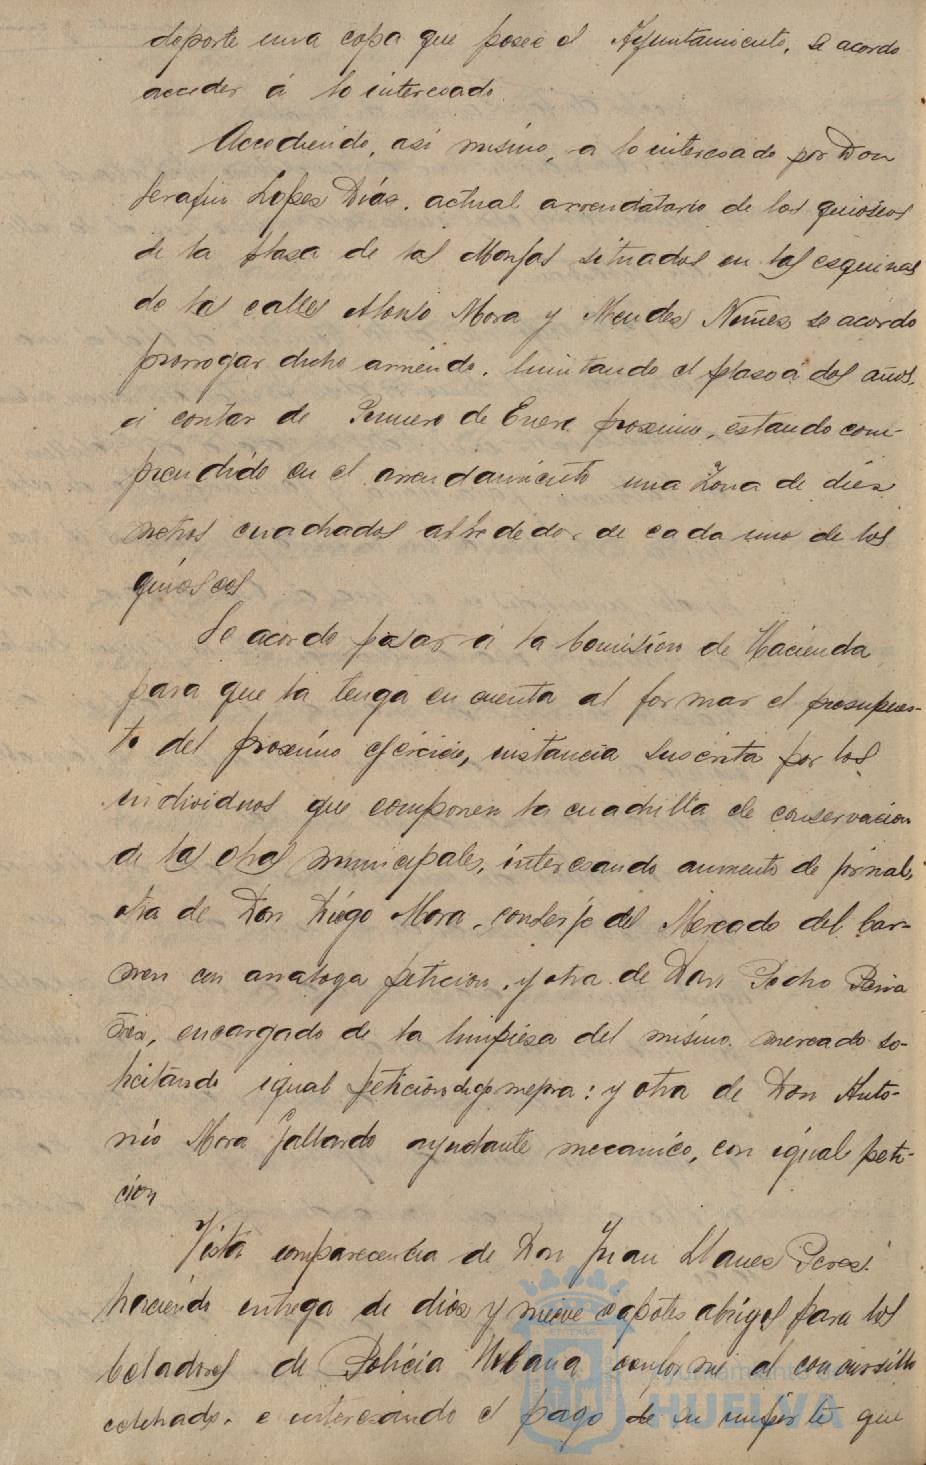 deporte una copa que posee el Ayuntamiento, se acordo
acceder á lo interesado.
Accediendo, asi mismo, a lo interesado por Don
Serafin Lopes Días, actual arrendatario de los quioscos
de la plasa de las Monjas situados en las esquinas
de las calles Alonso Mora y Mendes Nuñes se acordo
prorrogar dicho arriendo, limitando el plaso á dos años,
á contar de Primero de Enero proximo, estando com-
prendido en el arrendamiento una zona de dies
metros cuadrados alrededor de cada uno de los
quioscos
Se acordo pasar á la Comision de Hacienda
para que la tenga en cuenta al formar el presupues-
to del proximo ejercicio, instancia suscrita por los
individuos que componen la cuadrilla de conservacion
de las obras municipales, interesando aumento de jornal,
otra de Don Diego Mora, conserje del Mercado del Car-
men con analoga peticion, y otra de Don Pedro
encargado de la limpiesa del mismo mercado so-
licitando igual peticion de mejora: y otra de Don Anto-
nio Mora Gallardo ayudante mecanico, con igual peti-
cion
Vista comparecencia de Don Juan Llanes Peres
haciendo entrega de dies y nueve capotes abrigos para los
celadores de Policia Urbana conforme al concursillo
celebrado, e interesando el pago de su importe que
Ayuntamiento
HUELVA